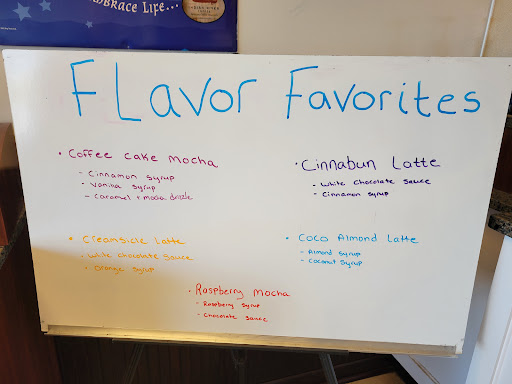 EMBRACE LIFE...
FLavor Favorites
• Coffee cake mocha
- Cinnamon syrup
- Vanilla syrup
- Caramel + mocha drizzle
• Cinnabun Latte
• White Chocolate Sauce
• Cinnamon syrup
• Creamsicle Latte
• White Chocolate Sauce
• Orange syrup
• Coco Almond Latte
- Almond syrup
- Coconut syrup
• Raspberry Mocha
- Raspberry syrup
- Chocolate sauce